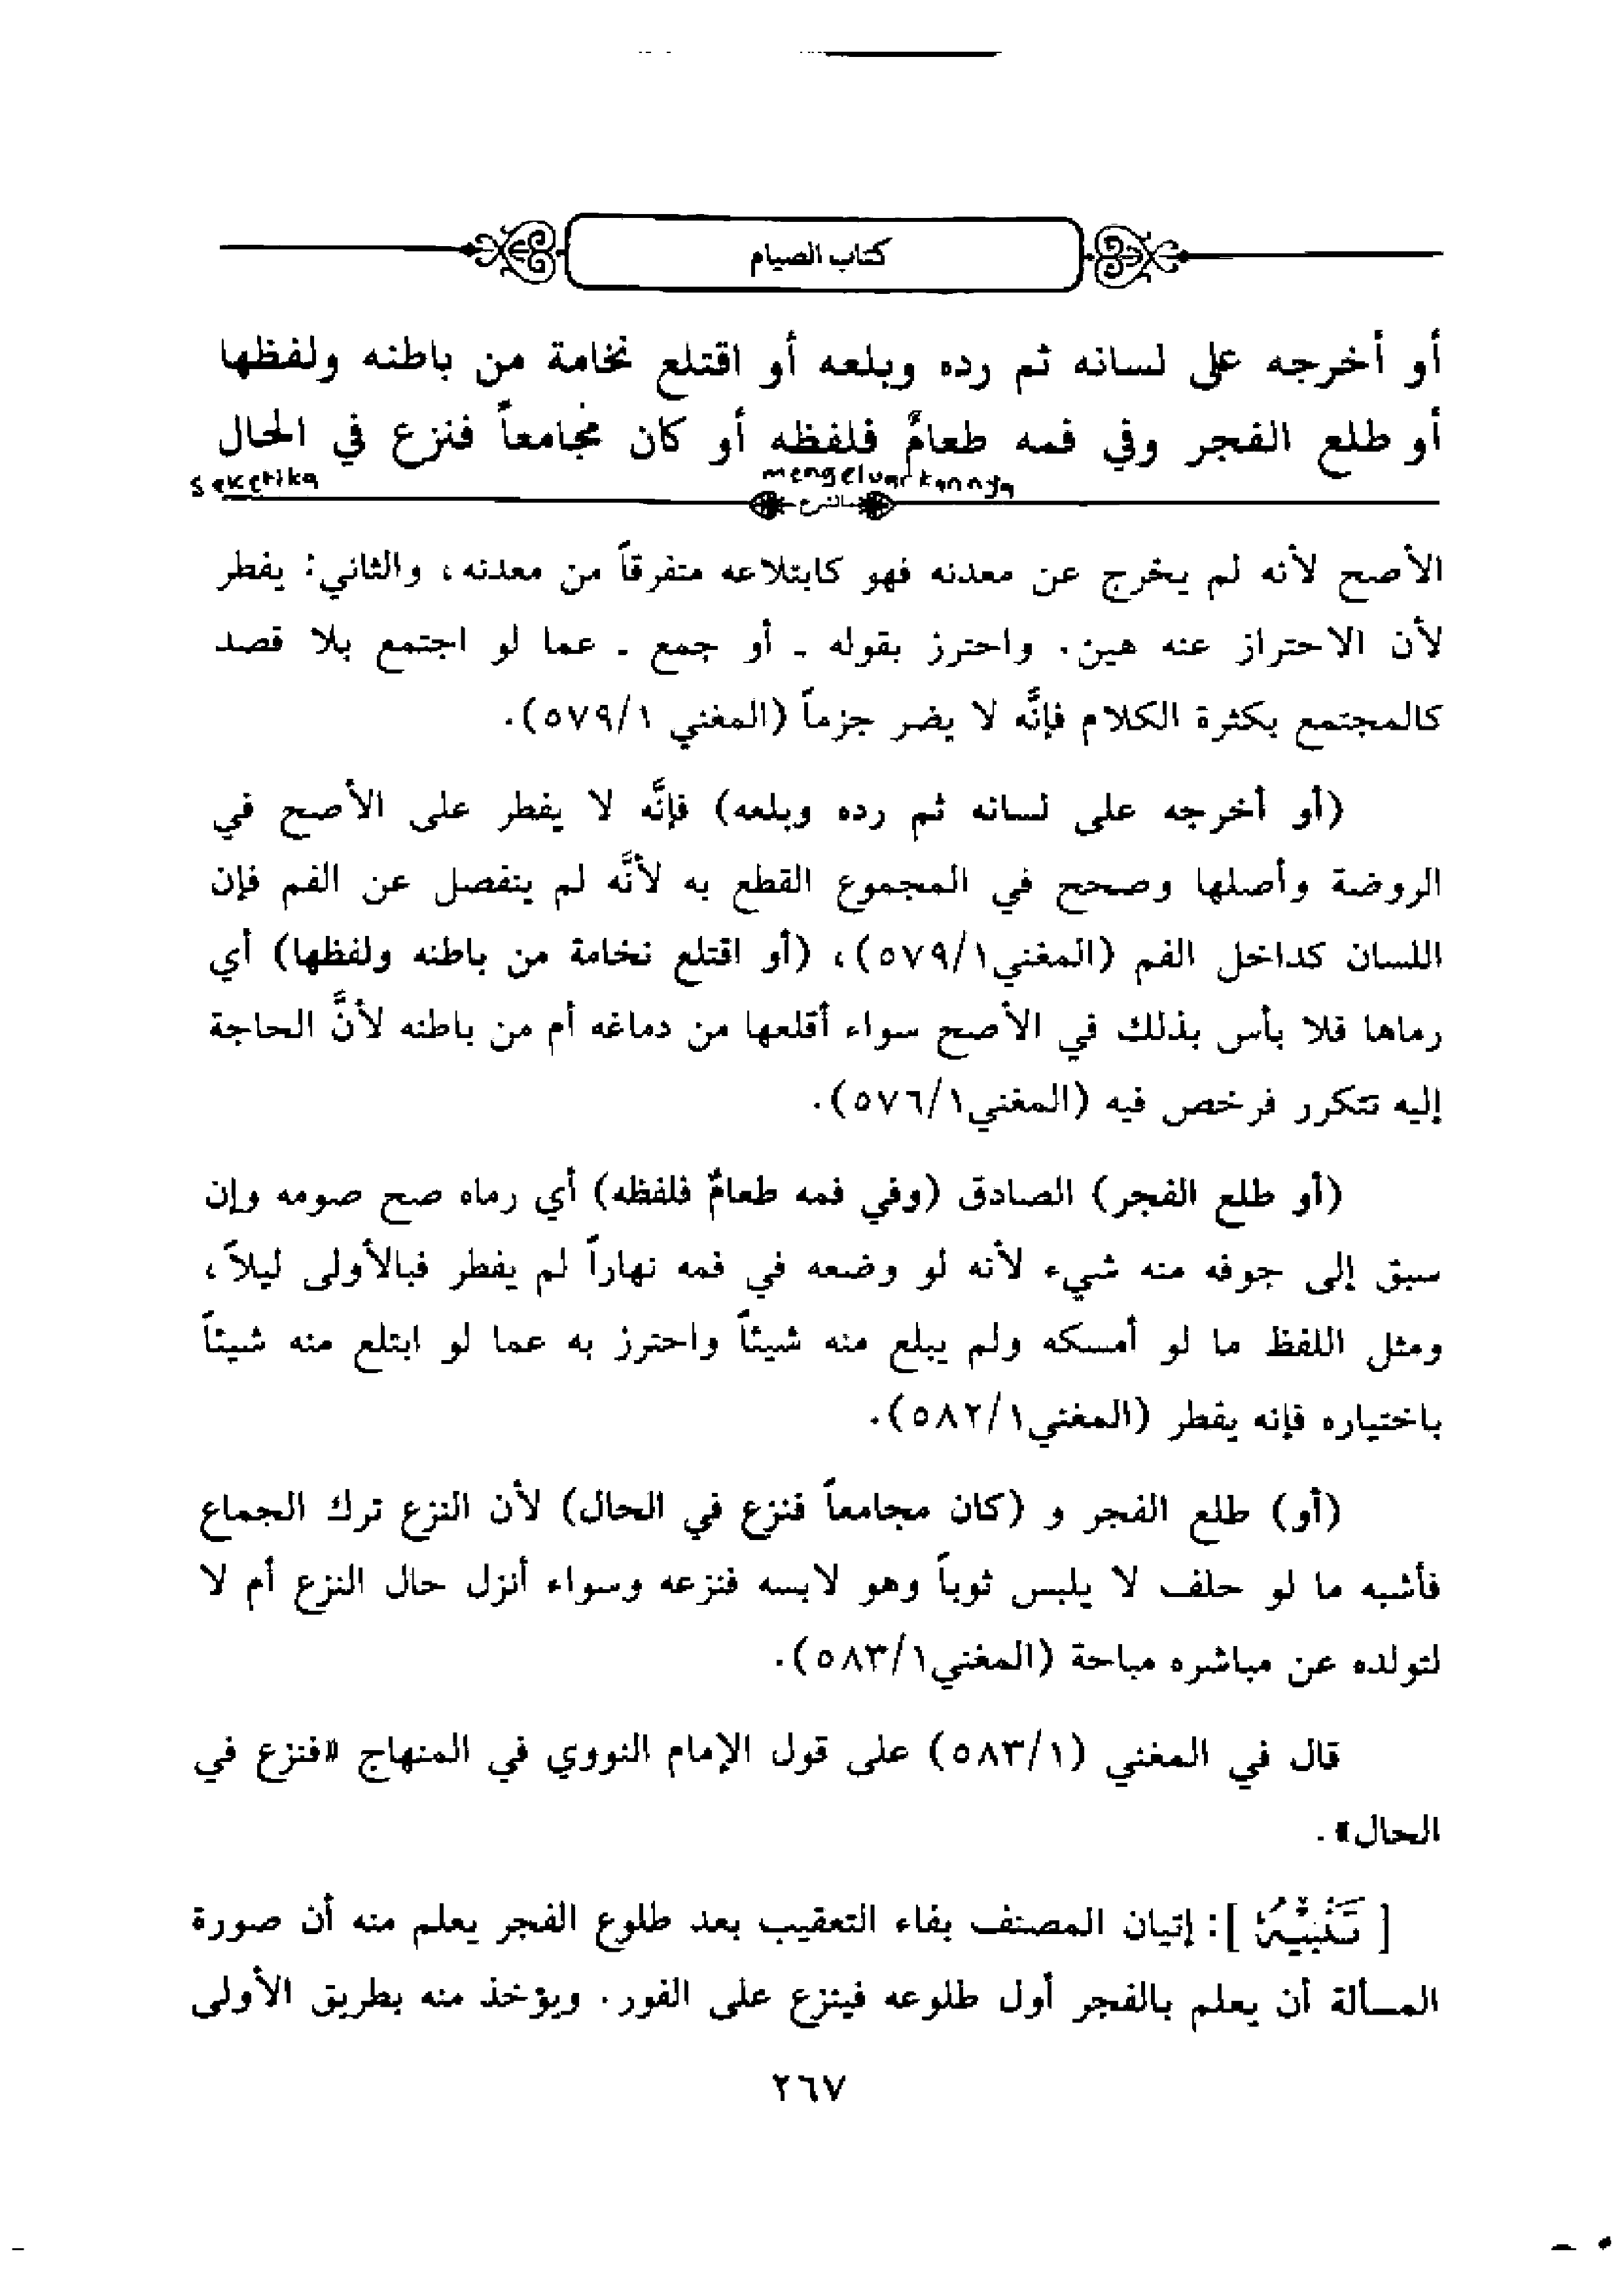 كتاب الصيام
أو أخرجه على لسانه ثم رده وبلعه أو اقتلع نخامة من باطنه ولفظها
أو طلع الفجر وفي فمه طعامٌ فلفظه أو كان مجامعاً فنزع في الحال
seketika mengeluarkannya
الشرح
الأصح لأنه لم يخرج عن معدنه فهو كابتلاعه متفرقاً من معدنه، والثاني: يفطر
لأن الاحتراز عنه هين. واحترز بقوله - أو جمع - عما لو اجتمع بلا قصد
كالمجتمع بكثرة الكلام فإنَّه لا يضر جزماً (المغني ٥٧٩/١).
(أو أخرجه على لسانه ثم رده وبلعه) فإنَّه لا يفطر على الأصح في
الروضة وأصلها وصحح في المجموع القطع به لأنَّه لم ينفصل عن الفم فإن
اللسان كداخل الفم (المغني٥٧٩/١)، (أو اقتلع نخامة من باطنه ولفظها) أي
رماها فلا بأس بذلك في الأصح سواء أقلعها من دماغه أم من باطنه لأنَّ الحاجة
إليه تتكرر فرخص فيه (المغني٥٧٦/١).
(أو طلع الفجر) الصادق (وفي فمه طعامٌ فلفظه) أي رماه صح صومه وإن
سبق إلى جوفه منه شيء لأنه لو وضعه في فمه نهاراً لم يفطر فبالأولى ليلاً،
ومثل اللفظ ما لو أمسكه ولم يبلع منه شيئاً واحترز به عما لو ابتلع منه شيئاً
باختياره فإنه يفطر (المغني٥٨٢/١).
(أو) طلع الفجر و (كان مجامعاً فنزع في الحال) لأن النزع ترك الجماع
فأشبه ما لو حلف لا يلبس ثوباً وهو لابسه فنزعه وسواء أنزل حال النزع أم لا
لتولده عن مباشره مباحة (المغني٥٨٣/١).
قال في المغني (٥٨٣/١) على قول الإمام النووي في المنهاج «فنزع في
الحال».
[تَنْبِيْهٌ]: إتيان المصنف بفاء التعقيب بعد طلوع الفجر يعلم منه أن صورة
المسألة أن يعلم بالفجر أول طلوعه فينزع على الفور. ويؤخذ منه بطريق الأولى
٢٦٧